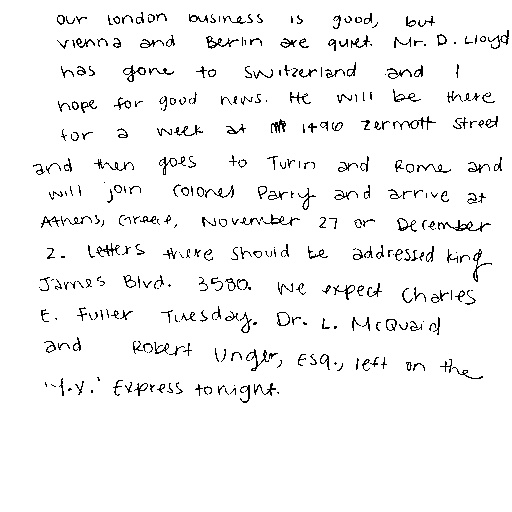 our London business is good, but
vienna and Berlin are quiet. Mr. D. Lloyd
has gone to Switzerland and I
hope for good news. He will be there
for a week at 1496 Zermott Street
and then goes to Turin and Rome and
will join Colonel Parry and arrive at
Athens, Greece, November 27 or December
2. Letters there should be addressed King
James Blvd. 3580. We expect Charles
E. Fuller Tuesday. Dr. L. McQuaid
and Robert Unger, Esq., left on the
"Y.X." Express tonight.